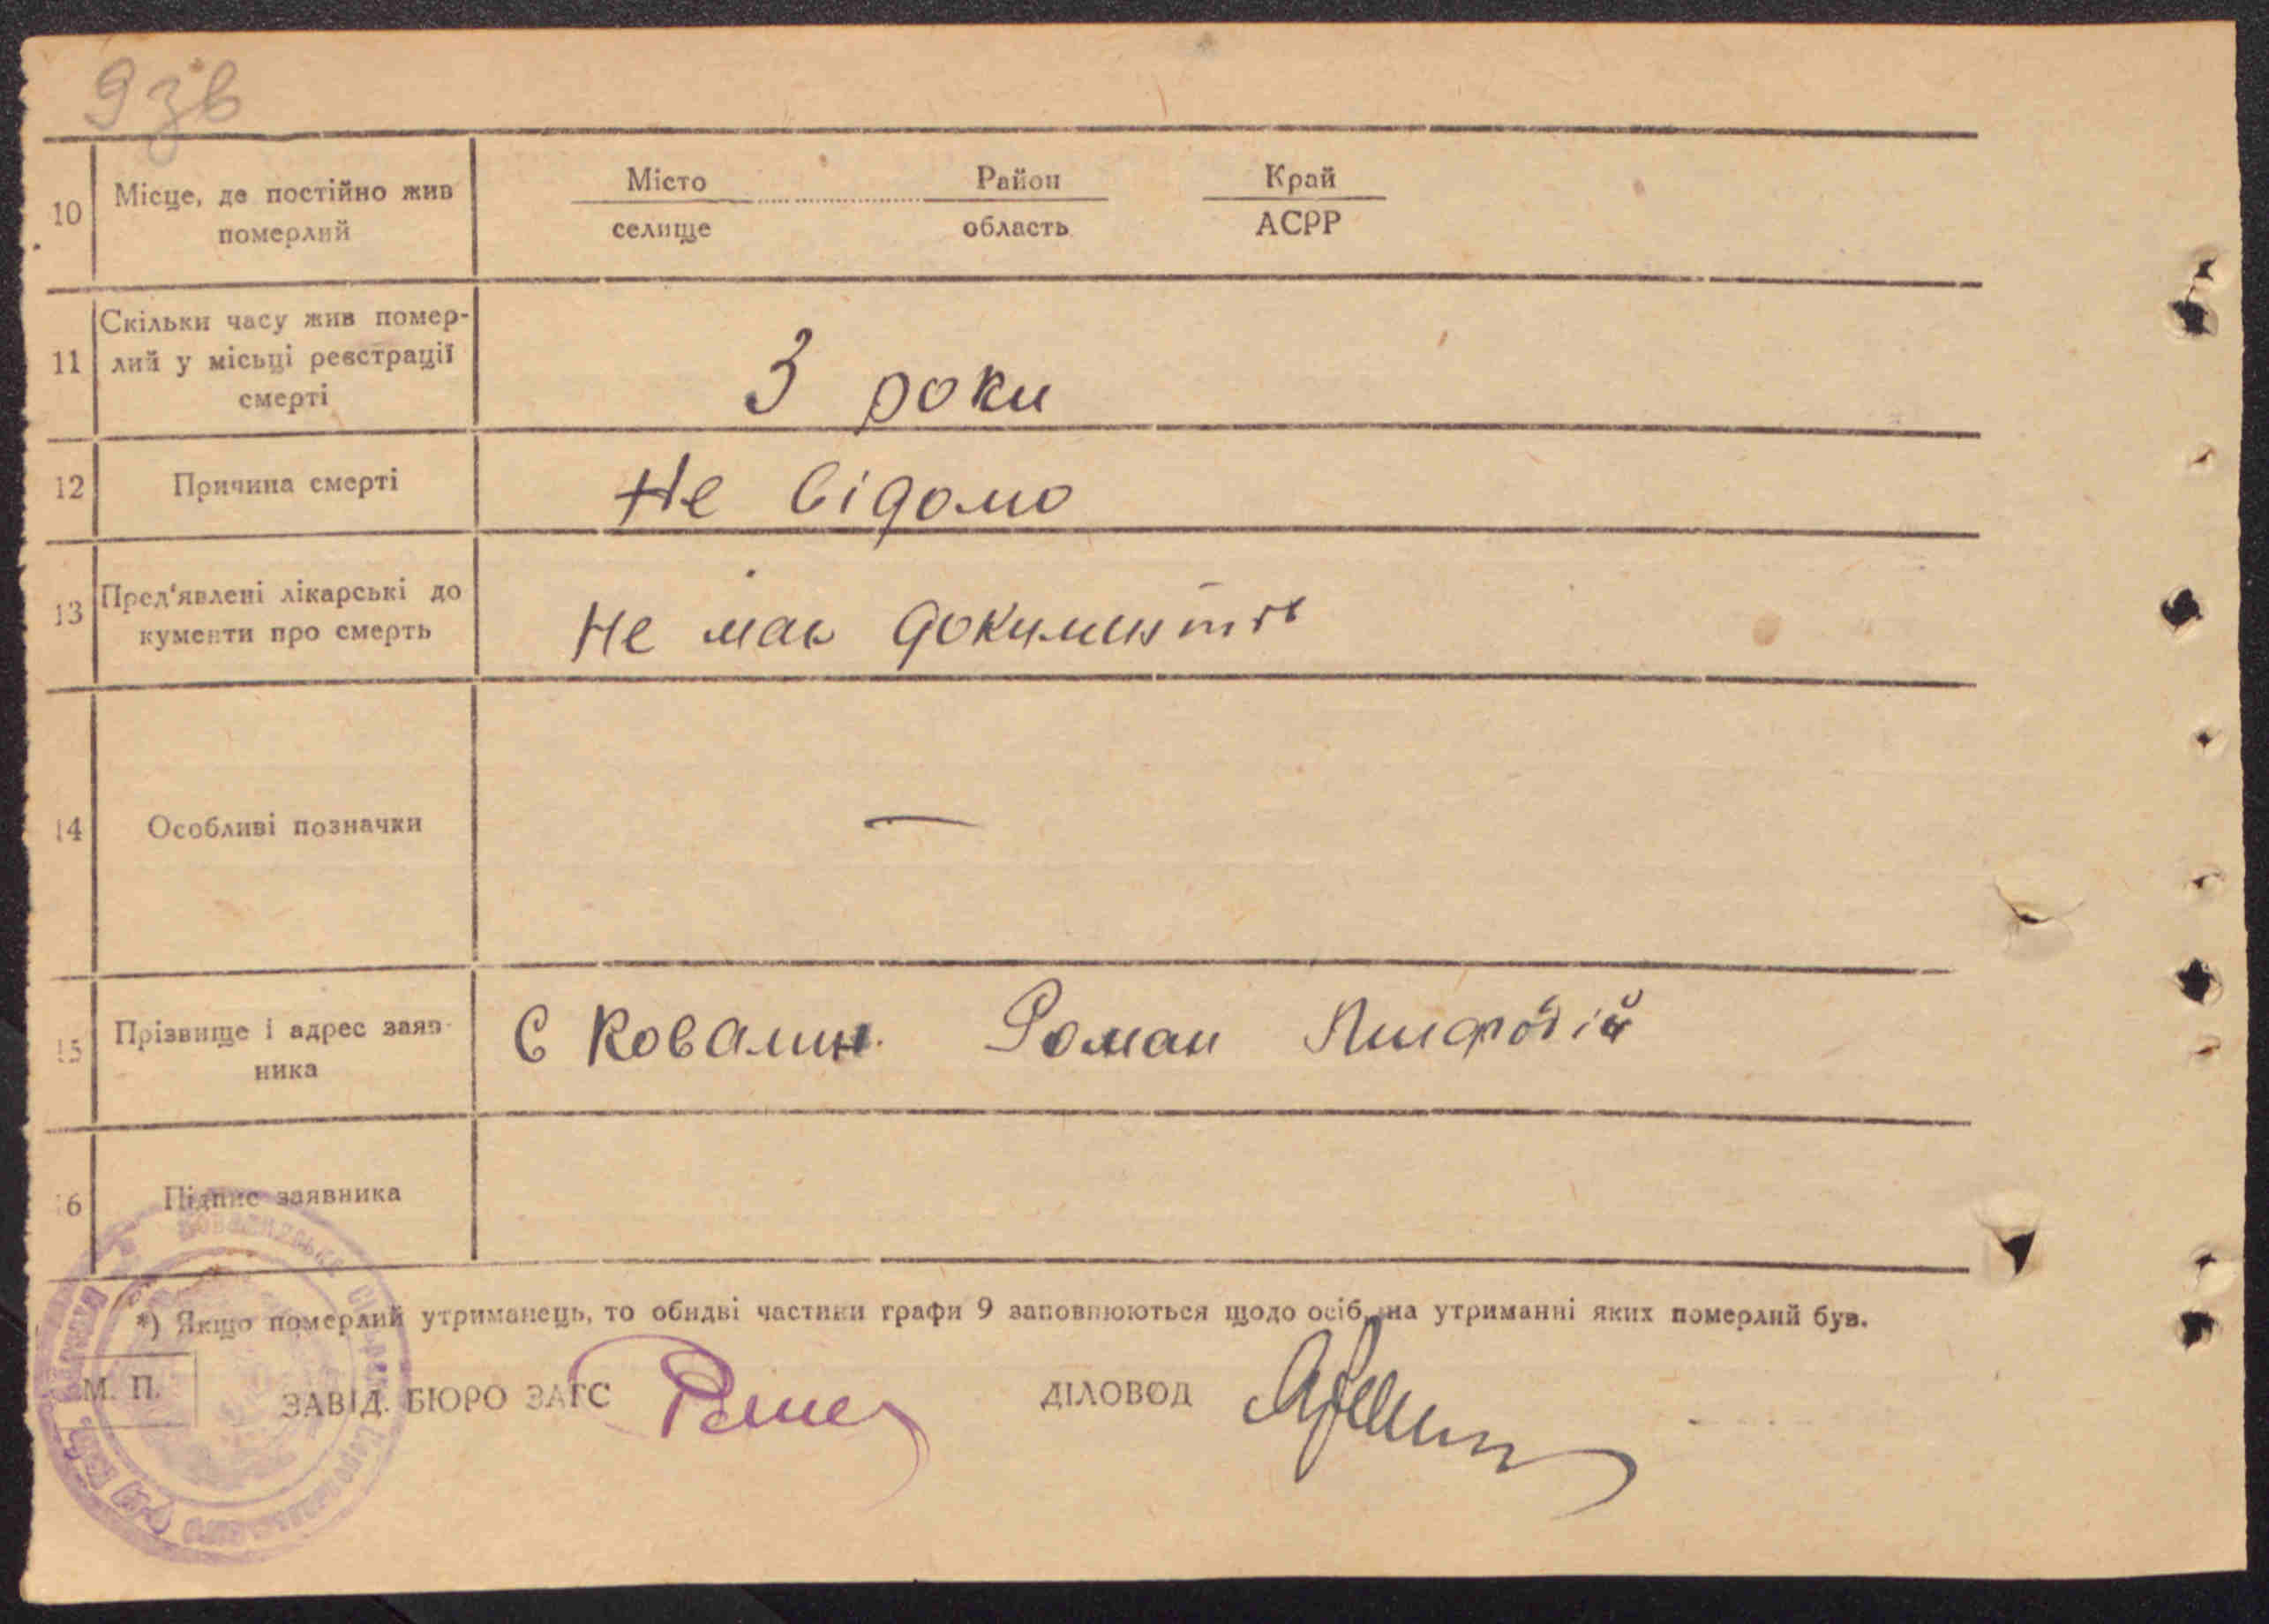 9зв
10 Місце, де постійно жив
померлий
Місто Район Край
селище область АСРР
11 Скільки часу жив помер-
лий у місьці реєстрації
смерті
3 роки
12 Причина смерті Не відомо
13 Пред'явлені лікарські до
кументи про смерть
Не має документів
14 Особливі позначки —
15 Прізвище і адрес заяв-
ника
С Ковалин. Роман
16 Підпис заявника
*) Якщо померлий утриманець, то обидві частини графи 9 заповнюються щодо осіб, на утриманні яких померлий був.
М. П.
ЗАВІД. БЮРО ЗАГС ДІЛОВОД